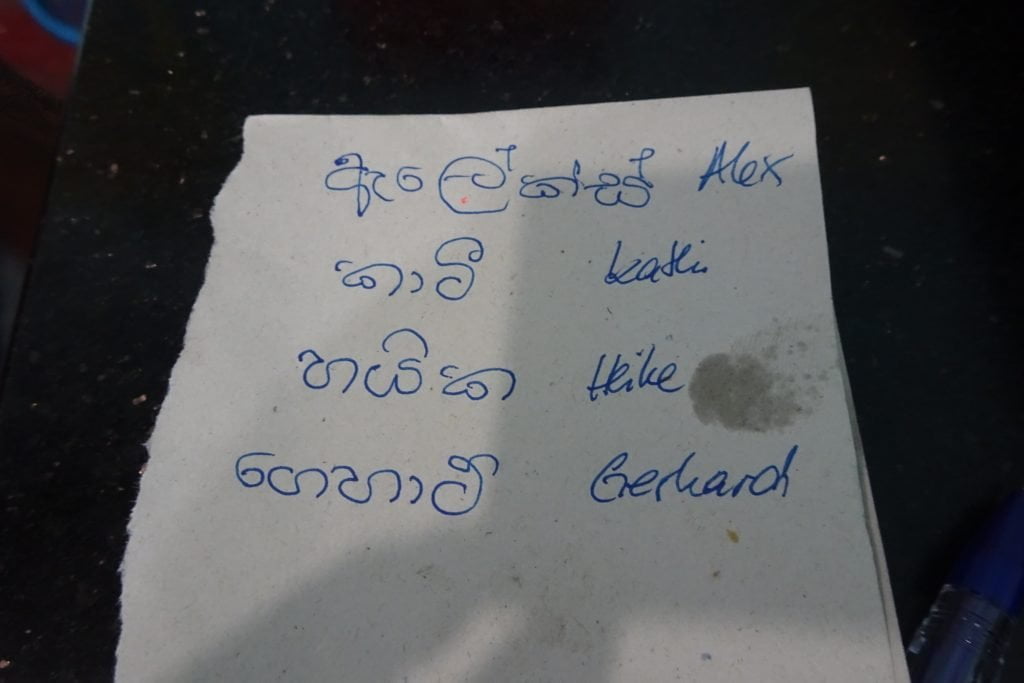 ඇලේක්ස් Alex
කාටි Kathi
හයික Heike
ගෙහාට් Gerhard